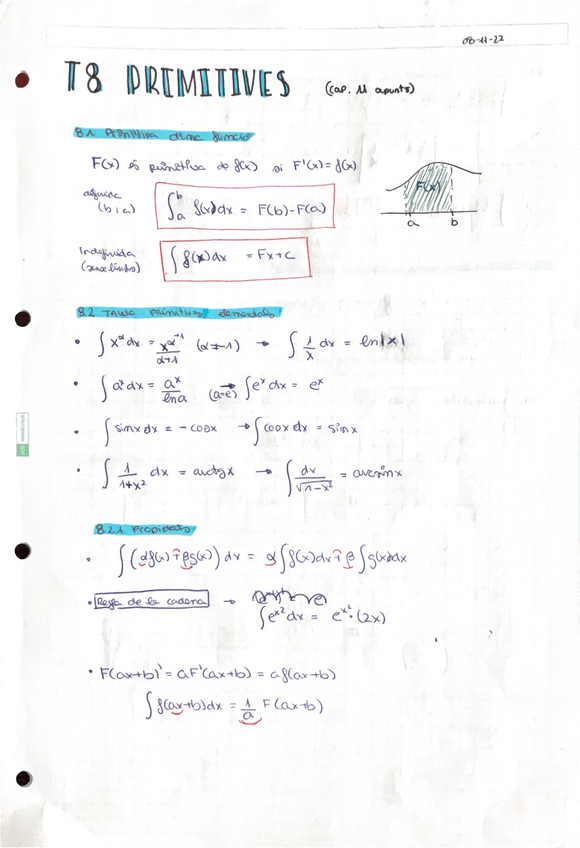 08-11-22
T8 PRIMITIVES (cap. 11 apunts)
8.1. PRIMITIVA d'una funció
F(x) és primitiva de f(x) si F'(x) = f(x)
(b i a)
∫_a^b f(x)dx = F(b)-F(a)
F(x)
a b
Indefinida
∫ f(x)dx = Fx+C
8.2 TAULA primitives elementals
• ∫ x^α dx = x^α-1/α+1 (α≠-1) → ∫ 1/x dx = ln|x|
• ∫ a^x dx = a^x/ln a (a=e) → ∫ e^x dx = e^x
• ∫ sinx dx = -cosx → ∫ cosx dx = sinx
• ∫ 1/1+x² dx = arctgx → ∫ dx/√1-x² = arcsinx
8.2.1 Propietats
• ∫ (αf(x) ∓ βg(x)) dx = α∫f(x)dx ∓ β∫g(x)dx
• Regla de la cadena →
∫ e^x² dx = e^x² · (2x)
• F(ax+b)' = aF'(ax+b) = af(ax+b)
∫ f(ax+b)dx = 1/a F(ax+b)